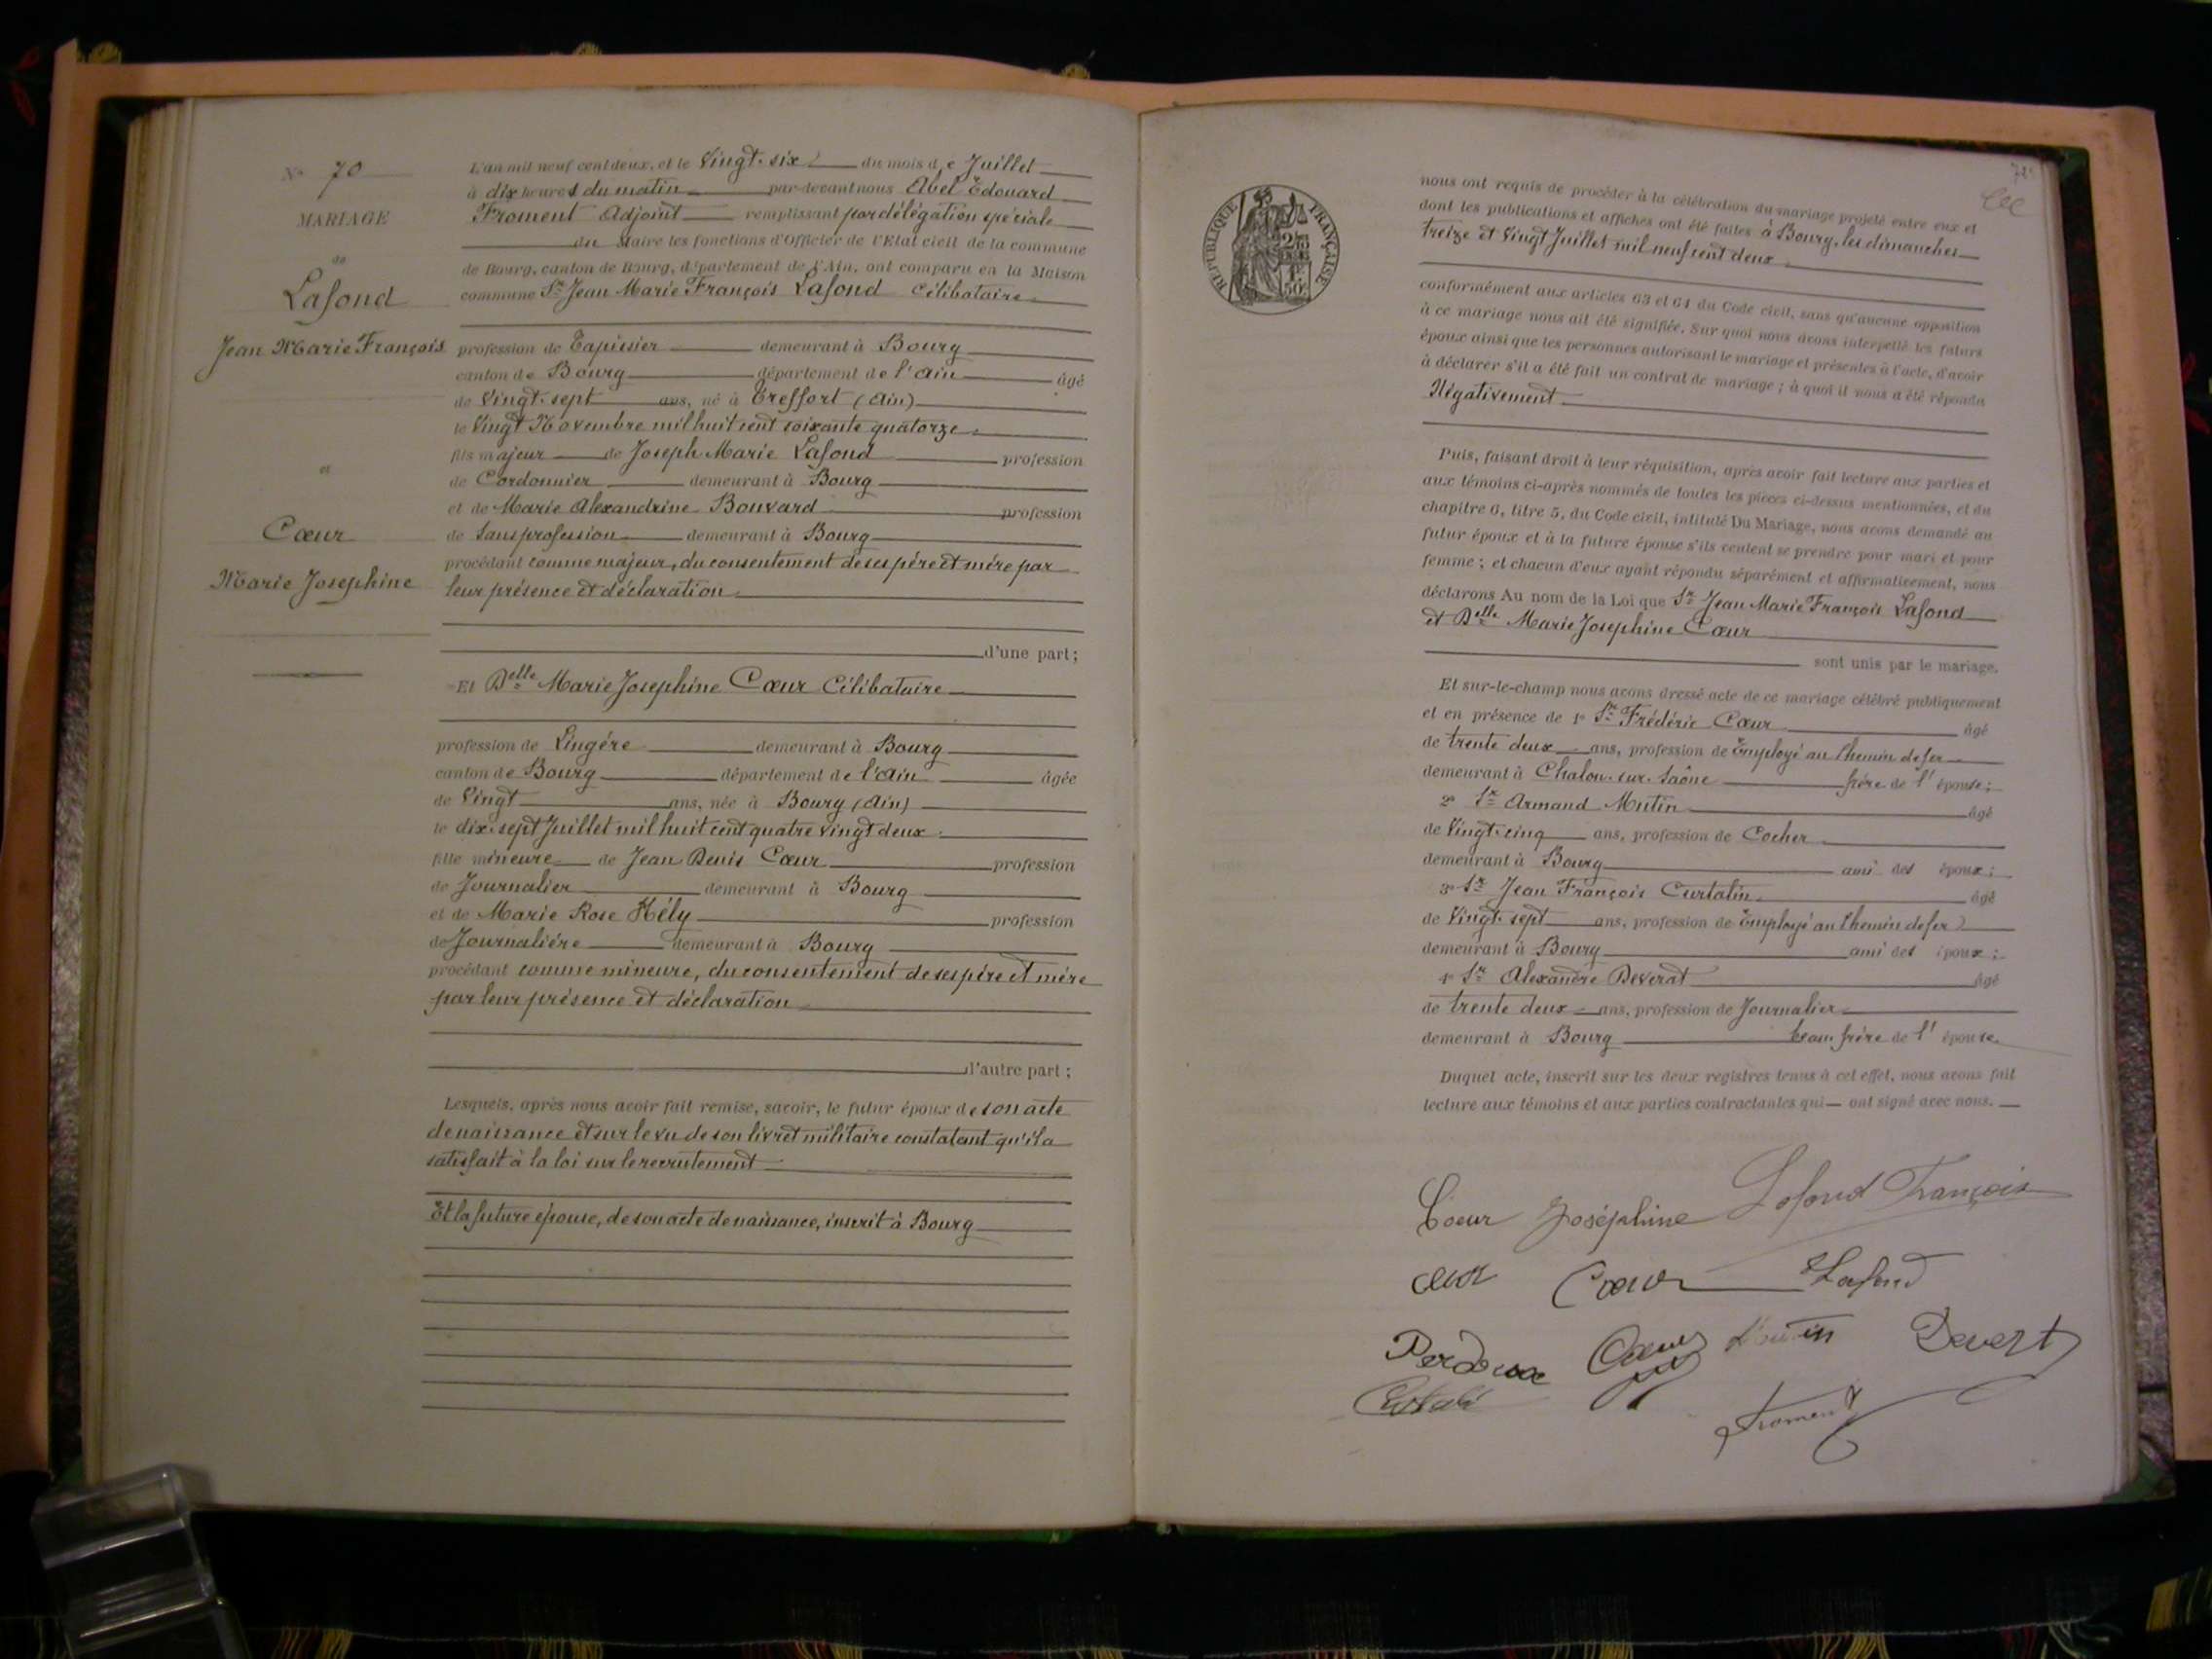 N° 70
MARIAGE
de
Lafond
Jean Marie François
et
Cœur
Marie Josephine
L'an mil neuf cent deux, et le Vingt-six du mois de Juillet
à dix heures du matin par-devant nous Abel Edouard
Froment Adjoint remplissant par délégation spéciale
du Maire les fonctions d'Officier de l'Etat civil de la commune
de Bourg, canton de Bourg, département de l'Ain, ont comparu en la Maison
commune Sr Jean Marie François Lafond Célibataire
profession de Tapissier demeurant à Bourg
canton de Bourg département de l'Ain âgé
de Vingt-sept ans, né à Treffort (Ain)
le Vingt Novembre mil huit cent soixante quatorze
fils majeur de Joseph Marie Lafond profession
de Cordonnier demeurant à Bourg
et de Marie Alexandrine Bouvard profession
de Sans profession demeurant à Bourg
procédant comme majeur, du consentement de ses père et mère par
leur présence et déclaration
d'une part;
Et Delle Marie Josephine Cœur Célibataire
profession de Lingére demeurant à Bourg
canton de Bourg département de l'Ain âgée
de Vingt ans, née à Bourg (Ain)
le dix-sept Juillet mil huit cent quatre vingt deux
fille mineure de Jean Denis Cœur profession
de Journalier demeurant à Bourg
et de Marie Rose Hély profession
de Journaliére demeurant à Bourg
procédant comme mineure, du consentement de ses père et mère
par leur présence et déclaration
d'autre part;
Lesquels, après nous avoir fait remise, savoir, le futur époux de son acte
de naissance et sur le vu de son livret militaire constatant qu'il a
satisfait à la loi sur le recrutement
Et la future épouse, de son acte de naissance, inscrit à Bourg
REPUBLIQUE FRANÇAISE
nous ont requis de procéder à la célébration du mariage projeté entre eux et
dont les publications et affiches ont été faites à Bourg, les dimanches
treize et Vingt Juillet mil neuf cent deux
conformément aux articles 63 et 64 du Code civil, sans qu'aucune opposition
à ce mariage nous ait été signifiée. Sur quoi nous avons interpellé les futurs
époux ainsi que les personnes autorisant le mariage et présentes à l'acte, d'avoir
à déclarer s'il a été fait un contrat de mariage; à quoi il nous a été répondu
Négativement
Puis, faisant droit à leur réquisition, après avoir fait lecture aux parties et
aux témoins ci-après nommés de toutes les pièces ci-dessus mentionnées, et du
chapitre 6, titre 5, du Code civil, intitulé Du Mariage, nous avons demandé au
futur époux et à la future épouse s'ils veulent se prendre pour mari et pour
femme; et chacun d'eux ayant répondu séparément et affirmativement, nous
déclarons Au nom de la Loi que Sr Jean Marie François Lafond
et Delle Marie Josephine Cœur
sont unis par le mariage.
Et sur-le-champ nous avons dressé acte de ce mariage célébré publiquement
et en présence de 1° Sr Frédéric Cœur âgé
de trente deux ans, profession de Employé au Chemin de fer
demeurant à Chalon-sur-Saône frére de l'épouse;
2° Sr Armand Mutin âgé
de Vingt-cinq ans, profession de Cocher
demeurant à Bourg ami des époux;
3° Sr Jean François Curtalin âgé
de Vingt-sept ans, profession de Employé au Chemin de fer
demeurant à Bourg ami des époux;
4° Sr Alexandre Deverat âgé
de trente deux ans, profession de Journalier
demeurant à Bourg beau-frére de l'épouse.
Duquel acte, inscrit sur les deux registres tenus à cet effet, nous avons fait
lecture aux témoins et aux parties contractantes qui ont signé avec nous.
Coeur Joséphine Lafond François
Cœur Lafond
Cœur Mutin
Froment